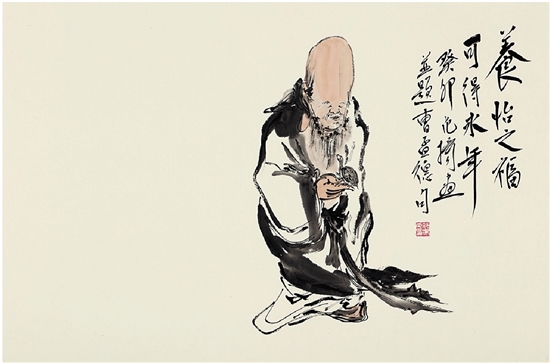 養怡之福
可得永年
癸卯范擴画
並題曹孟德句